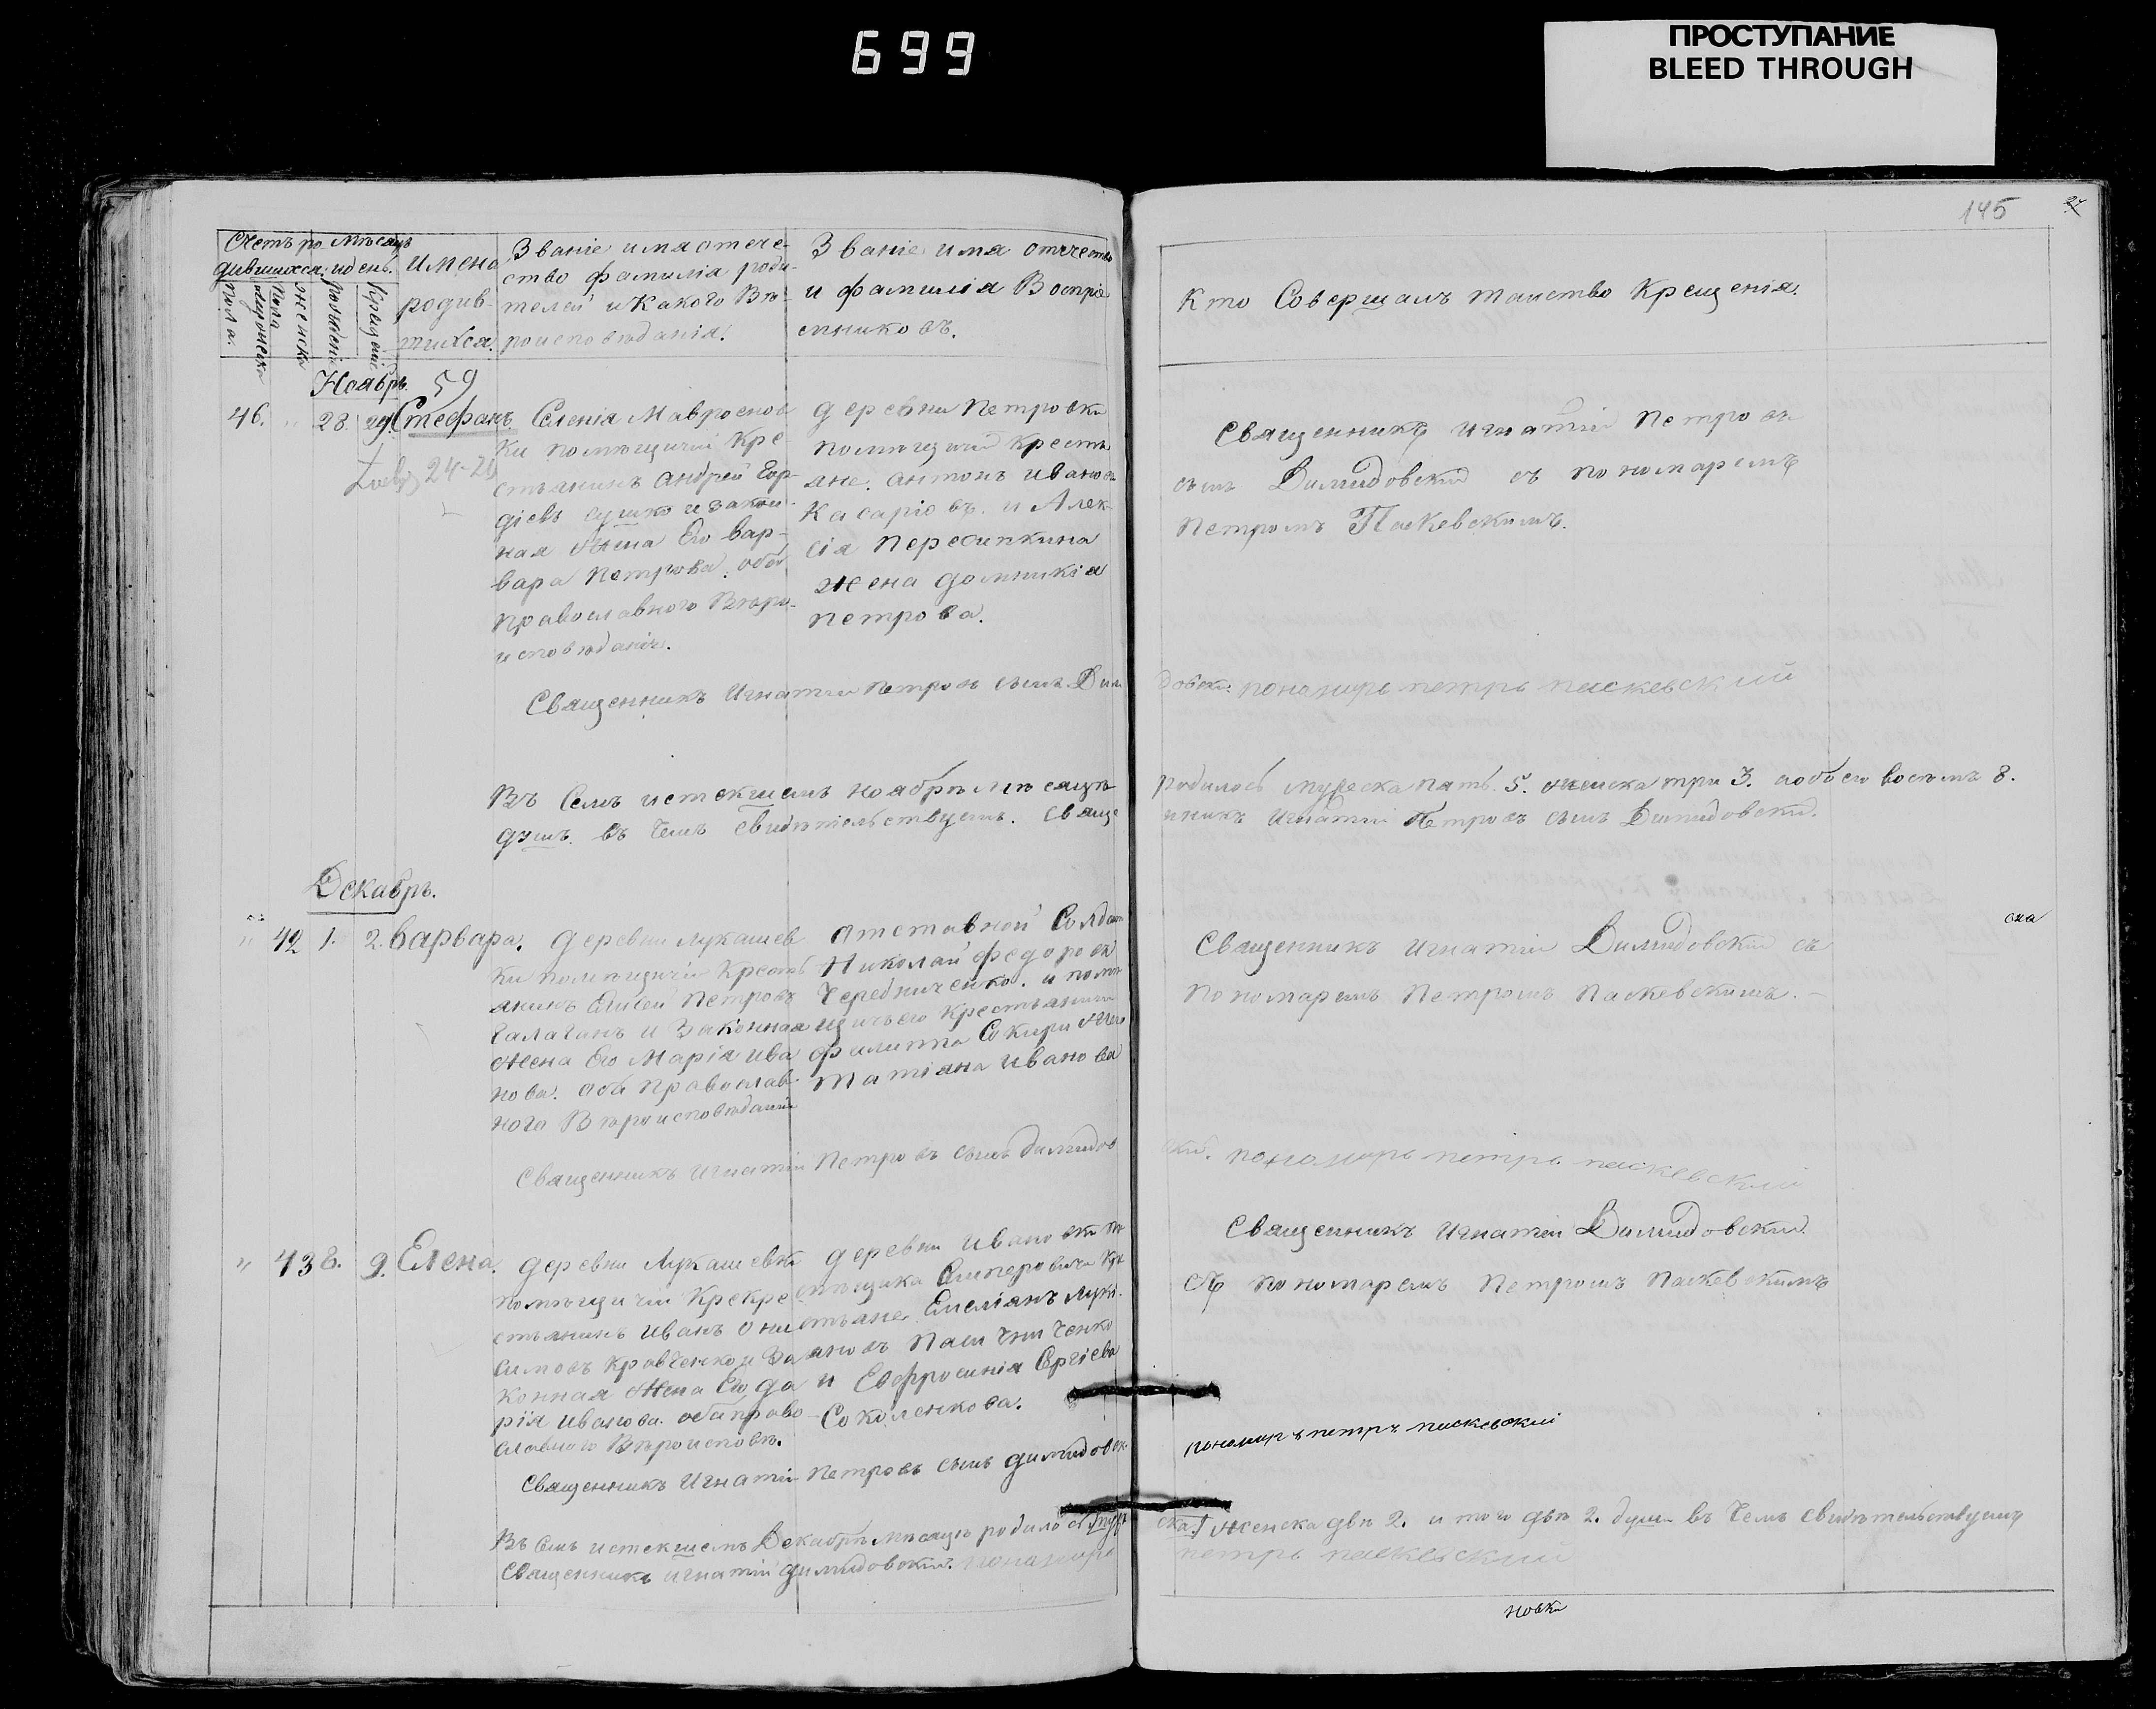 699
ПРОСТУПАНИЕ
BLEED THROUGH
145
Счетъ ро
дившихся.
Мѣсяцъ
и день.
Пола.
Мужеска
Пола
женска
Рожденія
Крещенія
имена
родив-
шихся.
Званіе имя отече-
ство фамилія роди-
телей и Какого Вѣ-
роисповѣданія.
Званіе имя отечество
и фамилія Воспріе
мниковъ.
Кто Совершалъ таинство Крещенія.
Ноябрь. 59
46. " 28. 29. Стефанъ.
24-26
Селенія Мавроенов
ки помѣщичій Кре
стьянинъ андрей Гор-
діевъ сушко и закон-
ная жена Его Вар-
вара Петрова. оба
православнаго Вѣро-
исповѣданія.
деревни Петровки
помѣщичій кресть
яне. антонъ ивановъ
Касаріовъ. и Алек-
сія Пересипкина
жена домникія
петрова.
Священникъ игнатій Петровъ
сынъ Димидовскій съ пономаремъ
Петромъ Паскевскимъ.
Священникъ Игнатій Петровъ сынъ Дими
довскі. пономарь петръ паскевский
Въ Семъ истекшемъ ноябрѣ мѣсяцѣ родилось мужеска пять. 5. женска три 3. а обоего восемь 8.
душъ. въ Чемъ свидѣтельствуемъ. Свяще
нникъ Игнатій Петровъ сынъ Димидовскій.
Декабрь.
" 42 1. 2. Варвара.
деревни Лукашев
ки помѣщичій Кресть
янинъ Петровъ
Галаганъ и Законная
жена Его Марія ива
нова. оба православ-
ного Вѣроисповѣданія
отставной Солдатъ
Николай федоровъ
Чередниченко. и помѣ
щичьего Крестьянина
филиппа Сокири жена
татіана иванова
Священникъ игнатій Димидовскій съ
пономаремъ Петромъ Паскевскимъ.-
ска
Священникъ игнатій Петровъ сынъ Димидов
скій. пономарь петръ паскевский
" 43 8. 9. Елена.
деревни Лукашевки
помѣщичій Крекре
стьянинъ иванъ они
симовъ кравченко и За
конная жена Его да
рія иванова. оба право
славного Вѣроисповѣ.
деревни ивановки по
мѣщика Кре
стьяне. Емеліанъ луки-
ановъ Пасичниченко
и Евфросинія Сергіева
Соколенкова.
Священникъ игнатій Димидовскій
съ пономаремъ Петромъ Паскевскимъ
пономарь петръ паскевский
Священникъ Игнатій Петровъ сынъ димидовск.
Въ Семъ истекшемъ Декабрѣ мѣсяцѣ родилось муже
ска. женска двѣ 2. и того двѣ 2. души въ Чемъ свидѣтельствуемъ
Священникъ игнатій димидовскій. пономарь
петръ паскевский
новки